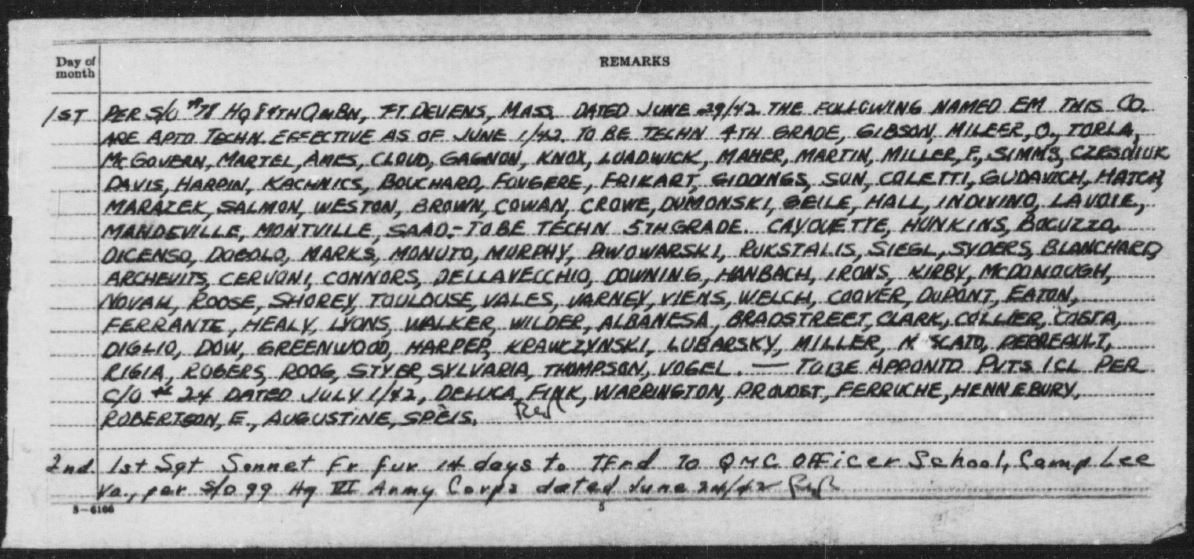 Day of month
REMARKS
1ST PER S/O #78 HQ 84TH QM BN, FT. DEVENS, MASS. DATED JUNE 29/42 THE FOLLOWING NAMED EM THIS CO.
ARE APTD TECHN. EFFECTIVE AS OF JUNE 1/42. TO BE TECHN 4TH GRADE, GIBSON, MILLER, O., TORLA,
MCGOVERN, MARTEL, AMES, CLOUD, GAGNON, KNOX, LOADWICK, MAHER, MARTIN, MILLER, F., SIMMS, CZESNIUK
DAVIS, HARPIN, KACHNICS, BOUCHARD, FOUGERE, FRIKART, GIDDINGS, SUN, COLETTI, GUDAVICH, HATCH,
MARAZEK, SALMON, WESTON, BROWN, COWAN, CROWE, DUMONSKI, GEILE, HALL, INDIVINO, LAVOIE,
MANDEVILLE, MONTVILLE, SAAD,- TO BE TECHN 5TH GRADE. CAYOUETTE, HUNKINS, BOCUZZO,
DICENSO, DOBOLO, MARKS, MONUTO, MURPHY, PIWOWARSKI, RUKSTALIS, SIEGL, SYDERS, BLANCHARD,
ARCHEVITS, CERVONI, CONNORS, DELLAVECCHIO, DOWNING, HANBACH, IRONS, KIRBY, MCDONOUGH,
NOVAH, ROOSE, SHOREY, TOULOUSE, VALES, VARNEY, VIENS, WELCH, COOVER, DUPONT, EATON,
FERRANTE, HEALY, LYONS, WALKER, WILDER, ALBANESA, BRADSTREET, CLARK, COLLIER, COSTA,
DIGLIO, DOW, GREENWOOD, HARPER, KRAWCZYNSKI, LUBARSKY, MILLER, PERREAULT,
RIGIA, ROBERS, ROOG, STYER, SYLVARIA, THOMPSON, VOGEL. — TO BE APPONTD PVTS 1CL PER
C/O #24 DATED JULY 1/42, DELUCA, FINK, WARRINGTON, PROVOST, FERRUCHE, HENNEBURY,
ROBERTSON, E., AUGUSTINE, SPEIS.
2nd 1st Sgt Sonnet Fr fur 14 days to Tfrd To QMC OFFicer School, Camp Lee
Va., per S/O 99 Hq VI Army Corps dated June 24/42
3-6166
5